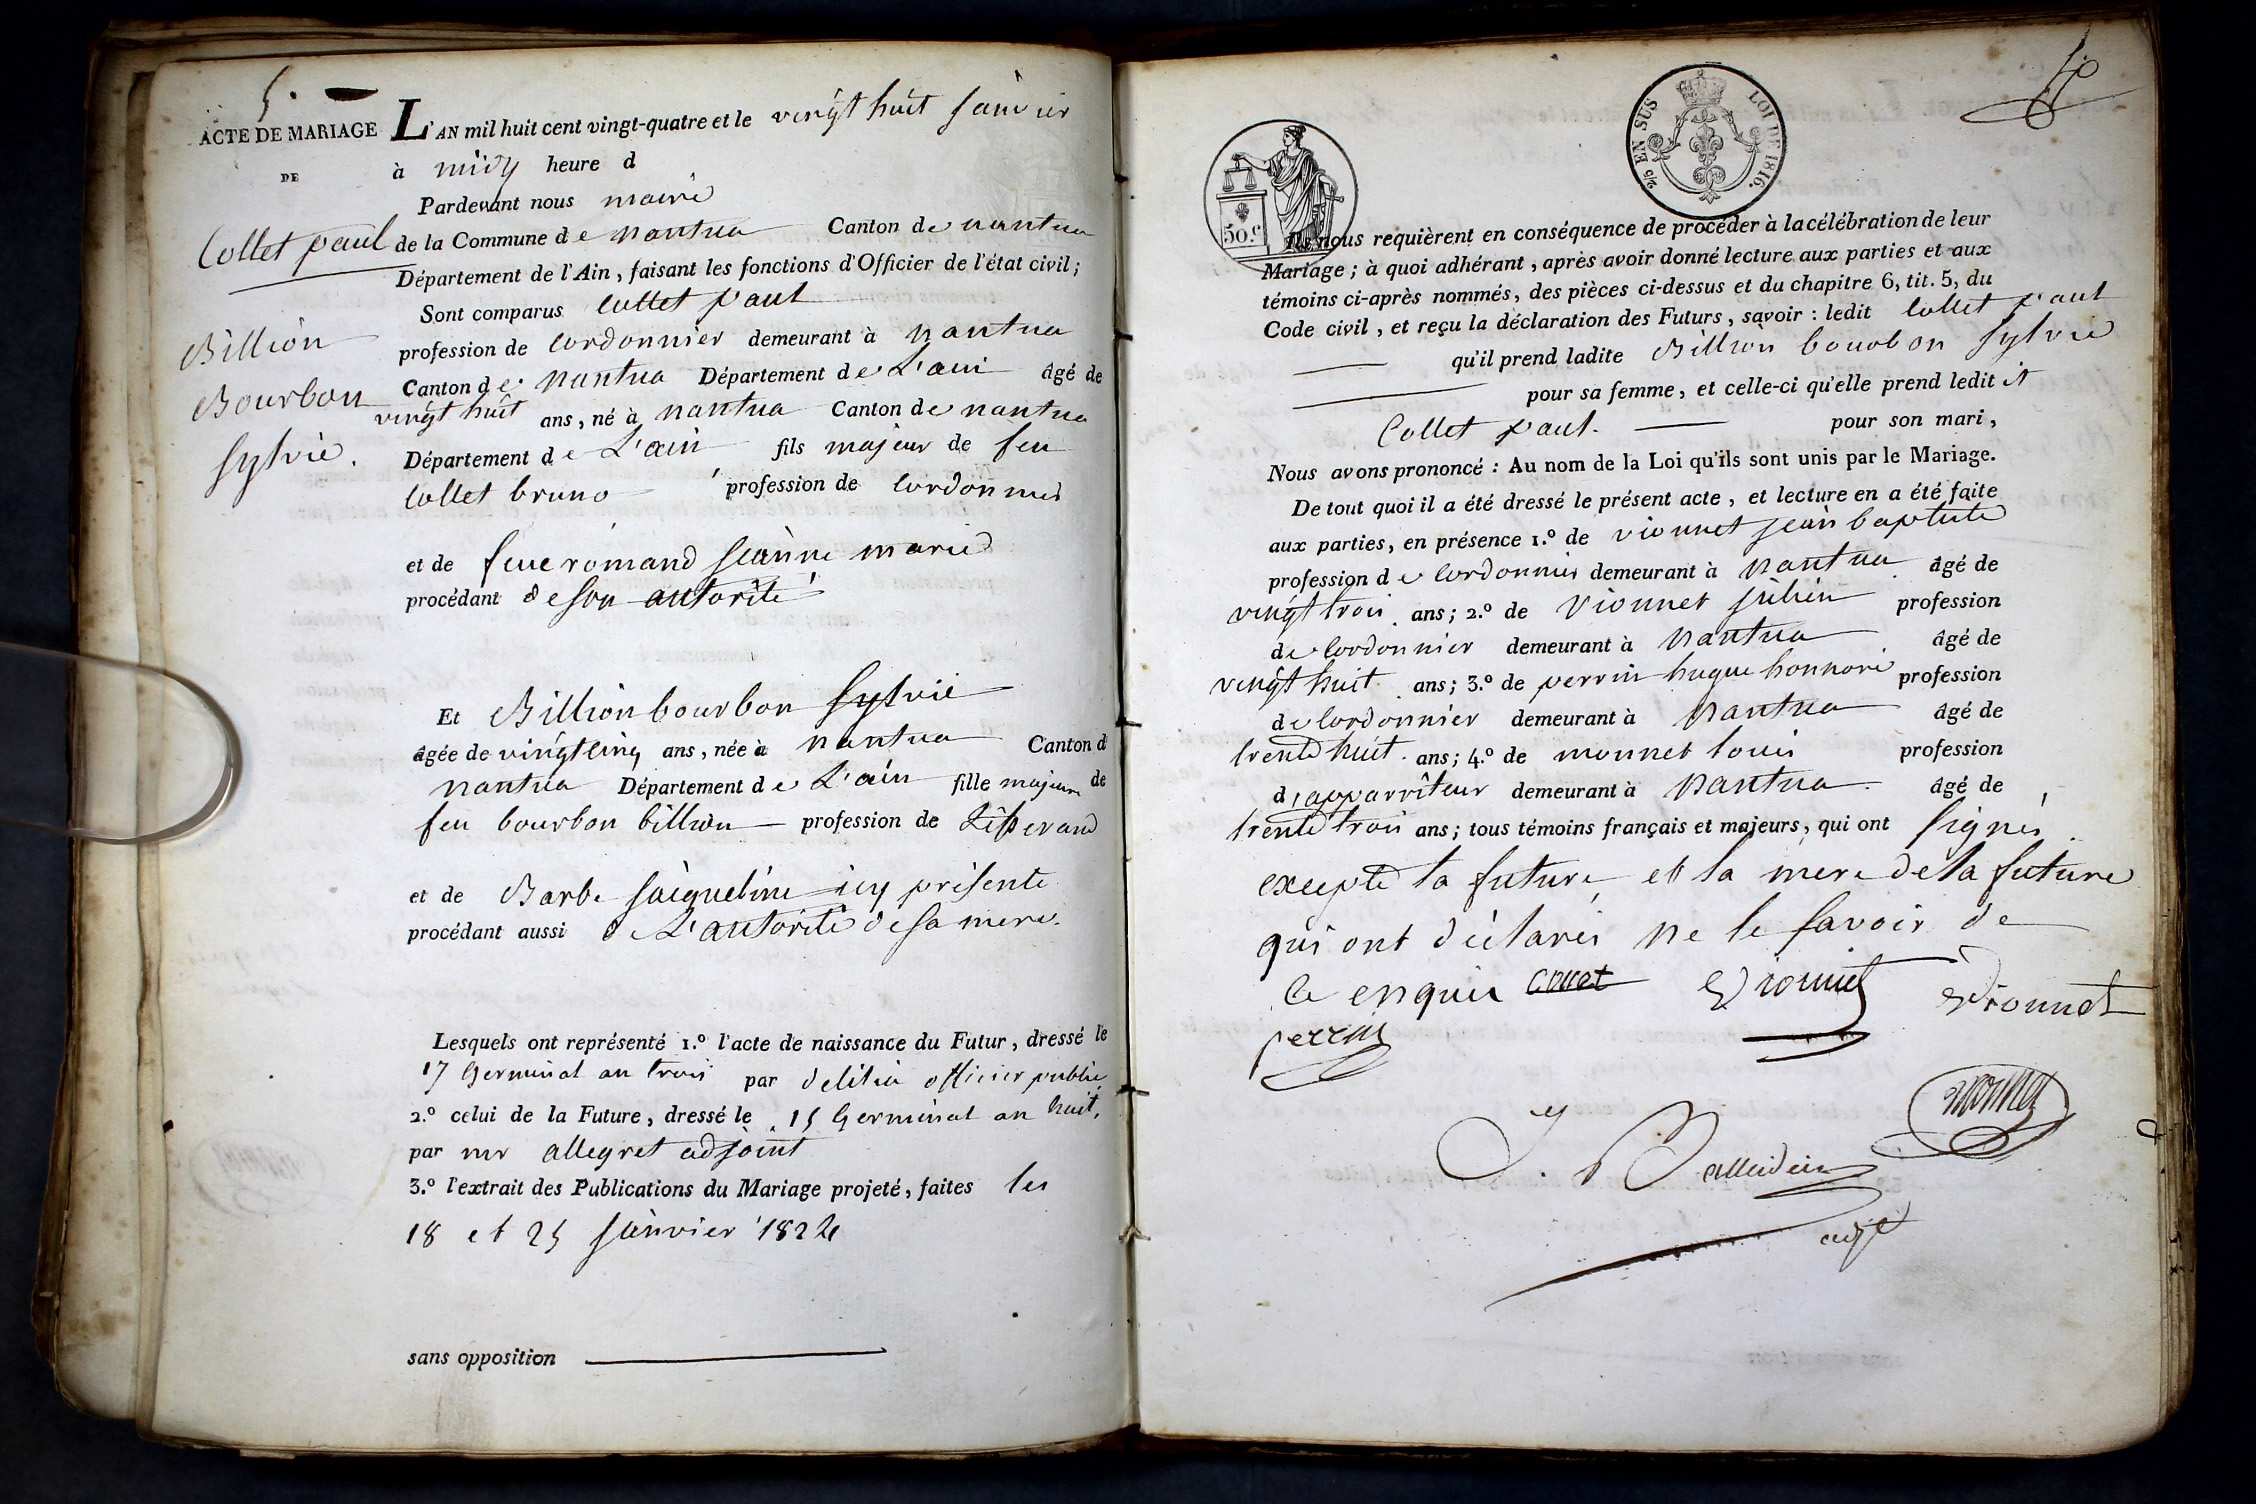 5.
ACTE DE MARIAGE
DE
Collet paul
Billion
Bourbon
Sylvie.
L'AN mil huit cent vingt-quatre et le vingt huit janvier
à midy heure d
Pardevant nous maire
de la Commune de nantua Canton de nantua
Département de l'Ain, faisant les fonctions d'Officier de l'état civil;
Sont comparus Collet paul
profession de Cordonnier demeurant à nantua
Canton de nantua Département de L'ain âgé de
vingt huit ans, né à nantua Canton de nantua
Département de L'ain fils majeur de feu
Collet bruno profession de Cordonnier
et de feue romand jeanne marie
procédant de son autorité
Et Billion bourbon Sylvie
âgée de vingt cinq ans, née à nantua Canton d
nantua Département de L'ain fille majeure de
feu bourbon billion profession de Tisserand
et de Barbe jaiqueline icy présente
procédant aussi de L'autorité de sa mere.
Lesquels ont représenté 1.º l'acte de naissance du Futur, dressé le
17 Germinal an trois par delilia officier public
2.º celui de la Future, dressé le 15 Germinal an huit,
par mr allegret adjoint
3.º l'extrait des Publications du Mariage projeté, faites les
18 et 25 janvier 1824
sans opposition
EN SUS
LOI DE 1816.
50.c
Ils nous requièrent en conséquence de procéder à la célébration de leur
Mariage; à quoi adhérant, après avoir donné lecture aux parties et aux
témoins ci-après nommés, des pièces ci-dessus et du chapitre 6, tit. 5, du
Code civil, et reçu la déclaration des Futurs, savoir : ledit Collet paul
qu'il prend ladite Billion bourbon Sylvie
pour sa femme, et celle-ci qu'elle prend ledit
Collet paul. pour son mari,
Nous avons prononcé : Au nom de la Loi qu'ils sont unis par le Mariage.
De tout quoi il a été dressé le présent acte, et lecture en a été faite
aux parties, en présence 1.º de vionnet jean baptiste
profession de Cordonnier demeurant à nantua âgé de
vingt trois ans; 2.º de Vionnet julien profession
de Cordonnier demeurant à nantua âgé de
vingt huit ans; 3.º de perrin hugue honnoré profession
de Cordonnier demeurant à nantua âgé de
trente huit ans; 4.º de monnet louis profession
d'apparrîteur demeurant à nantua. âgé de
trente trois ans; tous témoins français et majeurs, qui ont Signés
excepté la future et la mere de la future
qui ont déclarés ne le savoir de
ce enquis Collet Vionnet Vionnet
perrin
monnet